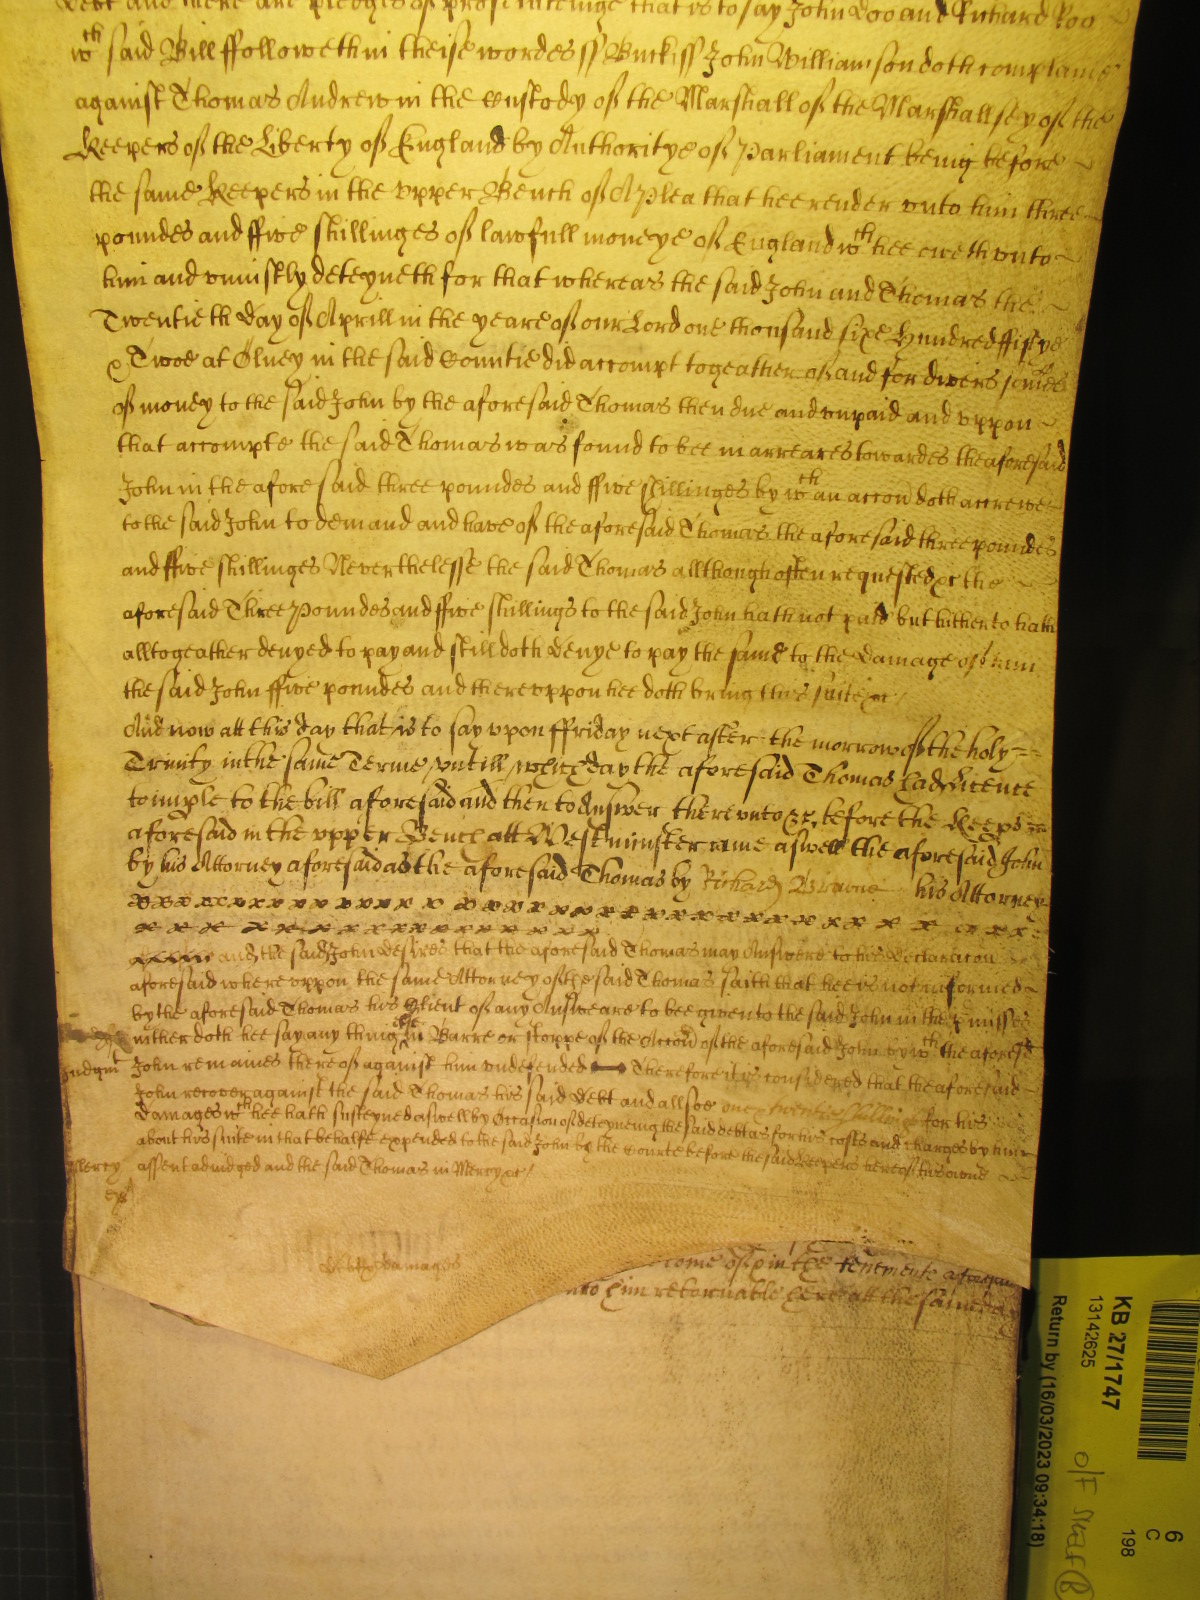 debt and there are pledges of prosecutinge that is to say John Doo and Richard Roo
wth said Bill ffolloweth in theise wordes ss Buck ss John Williamson doth complaine
against Thomas Andrew in the Custody of the Marshall of the Marshallsey of the
Keepers of the Liberty of England by Authoritye of Parliament being before
the same Keepers in the vpper Bench of A Plea that hee render vnto him three
poundes and ffive shillinges of lawfull moneye of England wth hee oweth vnto
him and vniustly deteyneth for that whereas the said John and Thomas the
Twentieth Day of Aprill in the yeare of our Lord one thousand sixe Hundred ffiftye
& Twoe at Olney in the said Countie did accompt togeather of and for divers summes
of money to the said John by the aforesaid Thomas then due and vnpaid and vppon
that accompte the said Thomas was found to bee in arreares towardes the aforesaid
John in the aforesaid three poundes and ffive shillinges by wth an accon doth accrewe
to the said John to demand and have of the aforesaid Thomas the aforesaid three poundes
and ffive shillinges Neverthelesse the said Thomas allthough often requested &c the
aforesaid Three Poundes and ffive shillings to the said John hath not paid but hitherto hath
alltogeather denyed to pay and still doth denye to pay the same to the damage of him
the said John ffive poundes and therevppon hee doth bring this suite &c
And now att this day that is to say vpon ffriday next after the morrow of the holy
Trinity in the same Terme vntill which day the aforesaid Thomas had licence
to imple to the bill aforesaid and then to Answer therevnto &c before the Keeps
aforesaid in the vpper Bench att Westminster came aswell the aforesaid John
by his Attorney aforesaid as the aforesaid Thomas by Richard his Attorney
and the said John desires that the aforesaid Thomas may Answere to his Declaracon
aforesaid where vppon the same Attorney of the said Thomas saith that hee is not informed
by the aforesaid Thomas his Client of any Answeare to bee given to the said John in the pmisses
nither doth hee say any thing else in Barre or stoppe of the Accon of the aforesaid John by wth the aforesd
Judgmt John remaines thereof against him vndefended Therefore it is considered that the aforesaid
John recover against the said Thomas his said Debt and allsoe for his
Damages wch hee hath susteyned aswell by Occasion of deteyneing the said debt as for his costs and charges by him
about his suite in that behalfe expended to the said John by the Courte before the said Keepers hereof his owne
Mercy assent adiudged and the said Thomas in Mercy &c
damages
come of in the tenemente aforesaid
vnto him retornable here att the same day
KB 27/1747
13142625
Return by (16/03/2023 09:34:18)
6
C
198